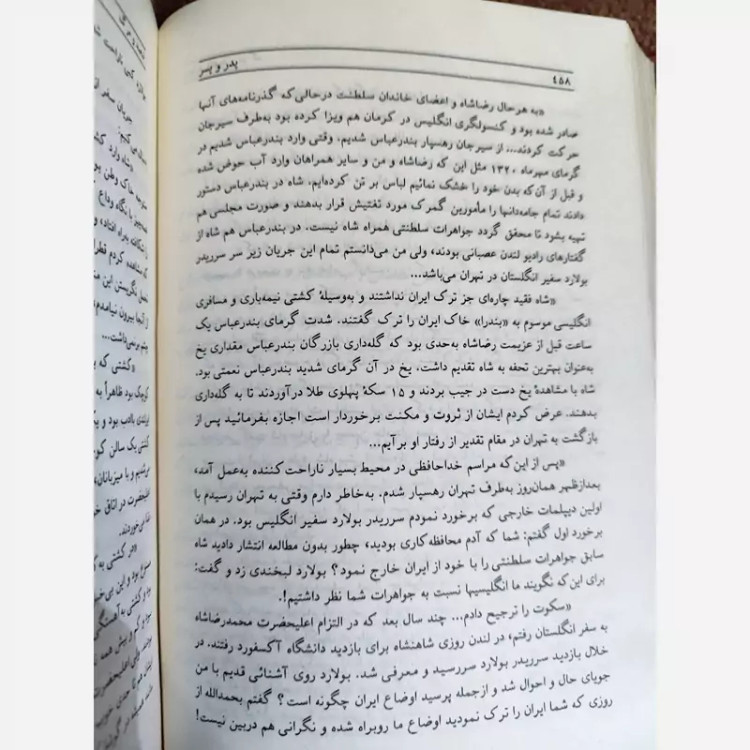 ٤٥٨
پدر و پسر
«به هرحال رضاشاه و اعضای خاندان سلطنت درحالی‌که گذرنامه‌های آنها
صادر شده بود و کنسولگری انگلیس در کرمان هم ویزا کرده بود به‌طرف سیرجان
حرکت کردند... از سیرجان رهسپار بندرعباس شدیم. وقتی وارد بندرعباس شدیم در
گرمای مهرماه ۱۳۲۰ مثل این که رضاشاه و من و سایر همراهان وارد آب حوض شده
و قبل از آن‌که بدن خود را خشک نمائیم لباس بر تن کرده‌ایم. شاه در بندرعباس دستور
دادند تمام جامه‌دانها را مأمورین گمرک مورد تفتیش قرار بدهند و صورت مجلسی هم
تهیه بشود تا محقق گردد جواهرات سلطنتی همراه شاه نیست. در بندرعباس هم شاه از
گفتارهای رادیو لندن عصبانی بودند، ولی من می‌دانستم تمام این جریان زیر سر سرریدر
بولارد سفیر انگلستان در تهران می‌باشد...
«شاه فقید چاره‌ای جز ترک ایران نداشتند و به‌وسیلهٔ کشتی نیمه‌باری و مسافری
انگلیسی موسوم به «بندرا» خاک ایران را ترک گفتند. شدت گرمای بندرعباس یک
ساعت قبل از عزیمت رضاشاه به‌حدی بود که گله‌داری بازرگان بندرعباس مقداری یخ
به‌عنوان بهترین تحفه به شاه تقدیم داشت. یخ در آن گرمای شدید بندرعباس نعمتی بود.
شاه با مشاهدهٔ یخ دست در جیب بردند و ۱۵ سکهٔ پهلوی طلا درآوردند تا به گله‌داری
بدهند. عرض کردم ایشان از ثروت و مکنت برخوردار است اجازه بفرمائید پس از
بازگشت به تهران در مقام تقدیر از رفتار او برآیم...
«پس از این‌که مراسم خداحافظی در محیط بسیار ناراحت کننده به‌عمل آمد،
بعدازظهر همان‌روز به‌طرف تهران رهسپار شدم. به‌خاطر دارم وقتی به تهران رسیدم با
اولین دیپلمات خارجی که برخورد نمودم سرریدر بولارد سفیر انگلیس بود. در همان
برخورد اول گفتم: شما که آدم محافظه‌کاری بودید، چطور بدون مطالعه انتشار دادید شاه
سابق جواهرات سلطنتی را با خود از ایران خارج نمود؟ بولارد لبخندی زد و گفت:
برای این‌که نگویند ما انگلیسیها نسبت به جواهرات شما نظر داشتیم!.
«سکوت را ترجیح دادم... چند سال بعد که در التزام اعلیحضرت محمدرضاشاه
به سفر انگلستان رفتم، در لندن روزی شاهنشاه برای بازدید دانشگاه آکسفورد رفتند. در
خلال بازدید سرریدر بولارد سررسید و معرفی شد. بولارد روی آشنائی قدیم با من
جویای حال و احوال شد و ازجمله پرسید اوضاع ایران چگونه است؟ گفتم بحمدالله از
روزی که شما ایران را ترک نمودید اوضاع ما روبراه شده و نگرانی هم دربین نیست!